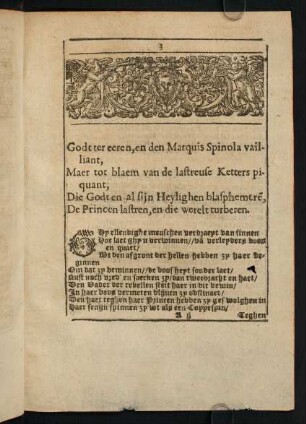 3
Godt ter eeren, en den Marquis Spinola vail-
liant,
Maer tot blaem van de lastreuse Ketters pi-
quant;
Die Godt en al sijn Heylighen blasphemtrē,
De Princen lastren, en die werelt turberen.
Ghy ellendighe menschen verdzaeyt van sinnen
Hoe laet ghy u verwinnen // vā verleyders boos
en quaet /
Wt den afgront der hellen hebben zy haer be-
ginnen
Om dat zy beminnen / de boosheyt sonder laet /
Rust noch vred' en soecken zy / dan tweedracht en haet /
Den Vader der rebellen steict haer in dit bewin /
In haer boos vermeten blijven zy obstinaet /
Den haet teghen haer Princen hebben zy
In haer fenijn spinnen zy wt als een Coppespin /
A ij Teghen